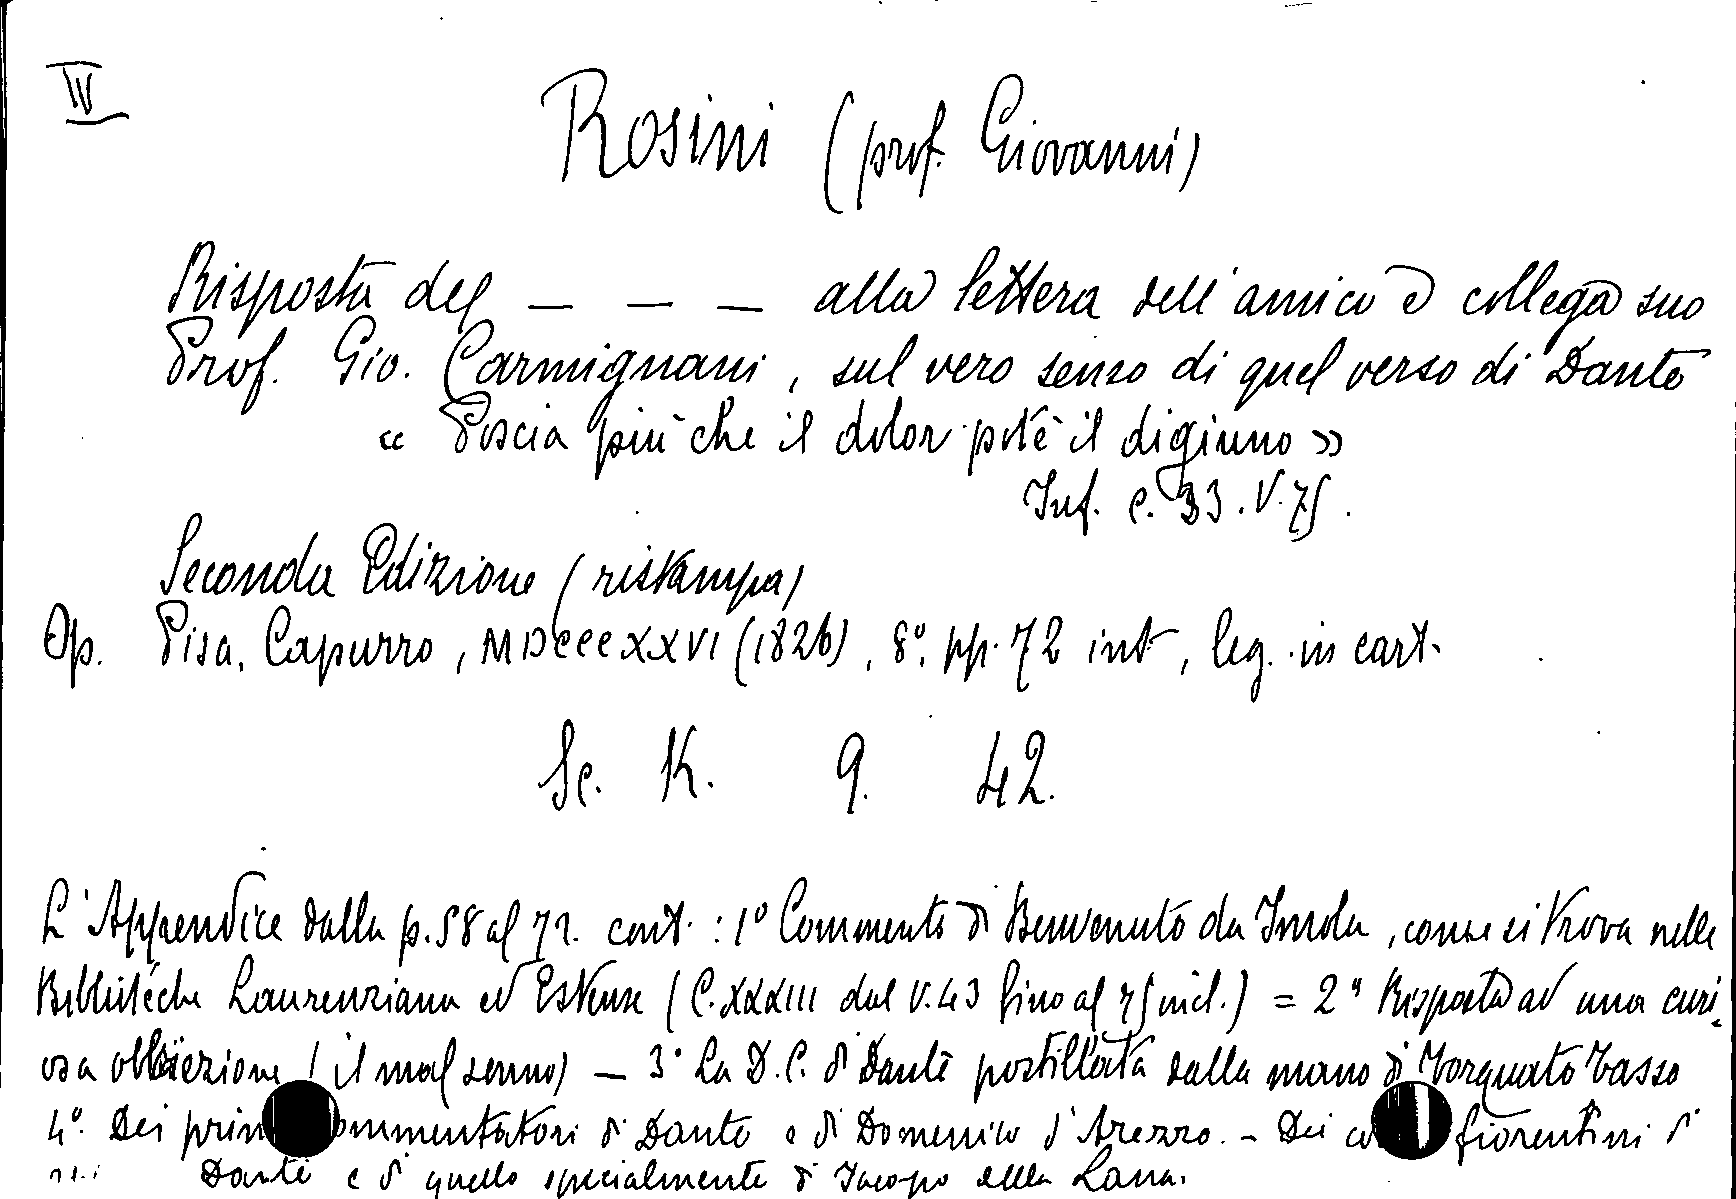 IV
Rosini (prof. Giovanni)
Risposta del — — — alla lettera dell'amico e collega suo
Prof. Gio. Carmignani, sul vero senso di quel verso di Dante
« Poscia più che il dolor potè il digiuno »
Inf. C. 33. V. 75.
Seconda Edizione (ristampa)
Op. Pisa, Capurro, MDCCCXXVI (1826), 8°, pp. 72 int, leg. in cart.
Sc. K. 9. 42.
L'Appendice dalla p. 58 al 72. cont. : 1° Commento di Benvenuto da Imola, come si trova nelle
Biblioteche Laurenziana ed Estense (C. XXXIII dal V. 43 fino al 75 incl.) = 2° Risposta ad una curi-
osa obbiezione (il mal sonno) — 3° La D. C. di Dante postillata dalla mano di Torquato Tasso
4°. Dei commentatori di Dante e di Domenico d'Arezzo. - Dei fiorentini di
Dante e di quello specialmente di Jacopo della Lana.